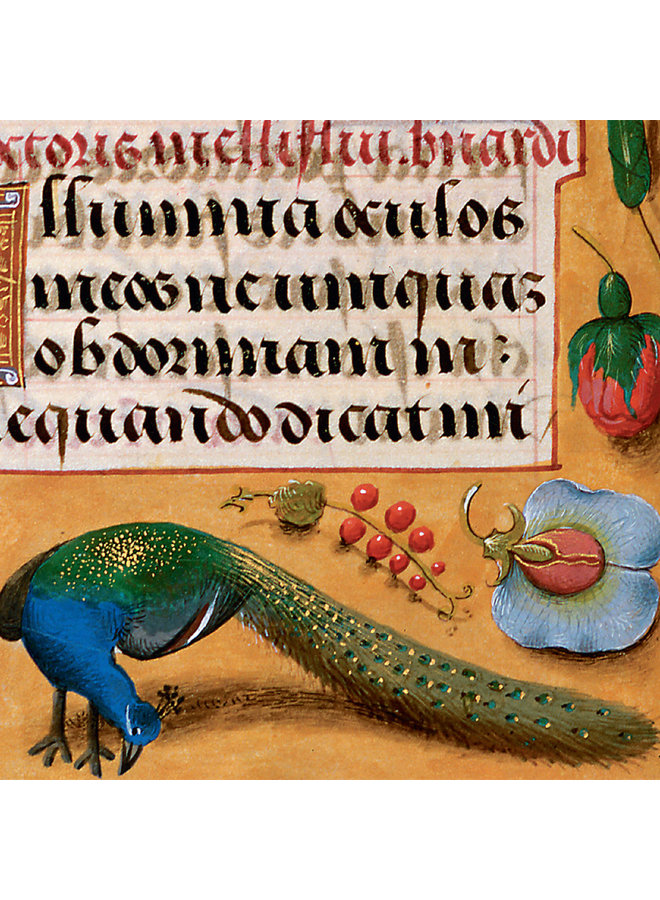 ctoris melliflui. bnardi
Illumina oculos
meos ne umquaz
obdormiam in :
equando dicat ini